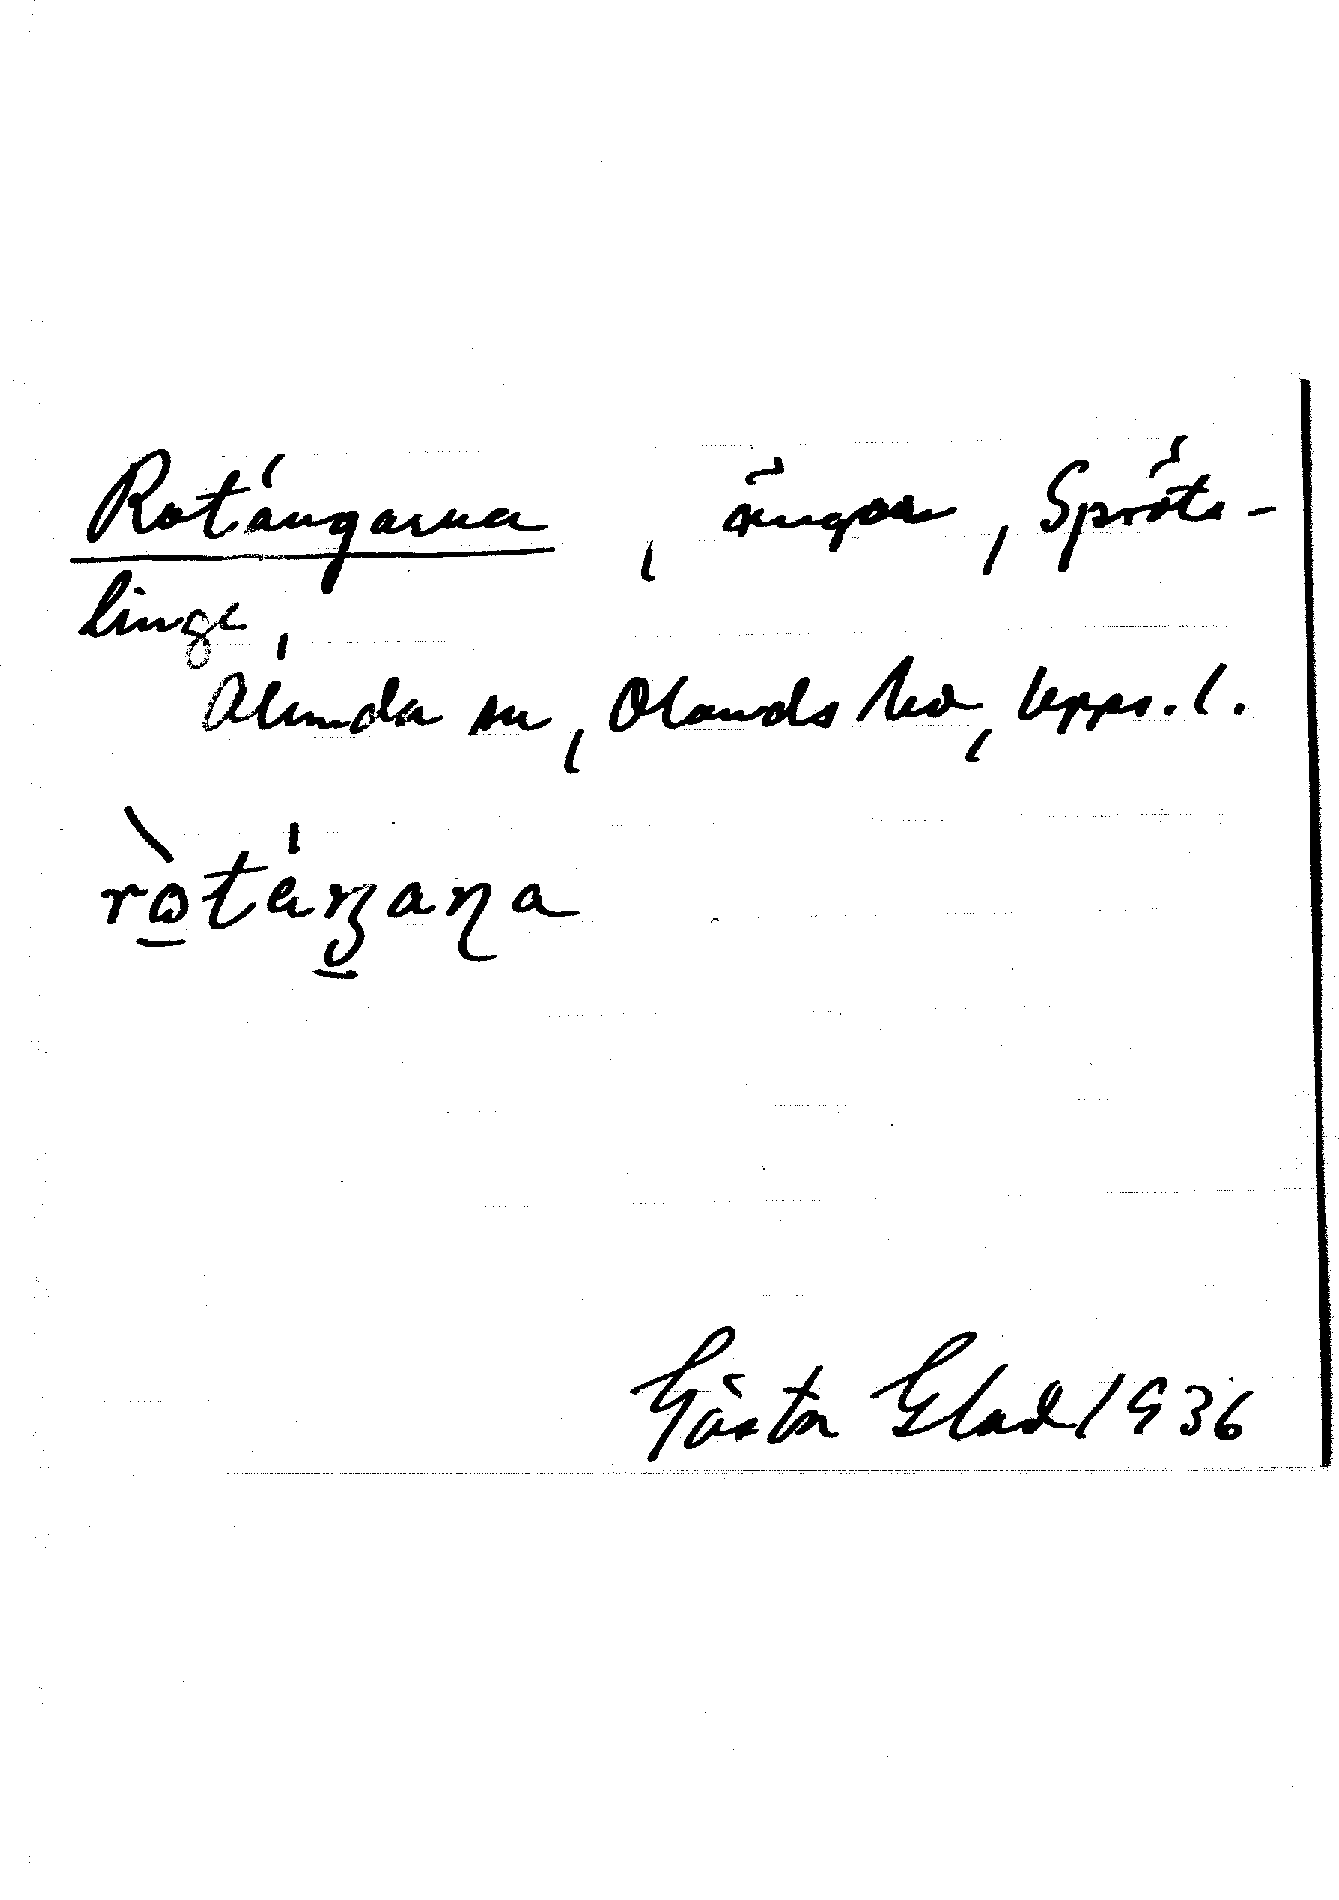 Rotängarna, ängar, Spröts-
linge,
Alunda sn, Olands hd, Upps. l.
ròtäŋaɳa
Gösta Glad 1936